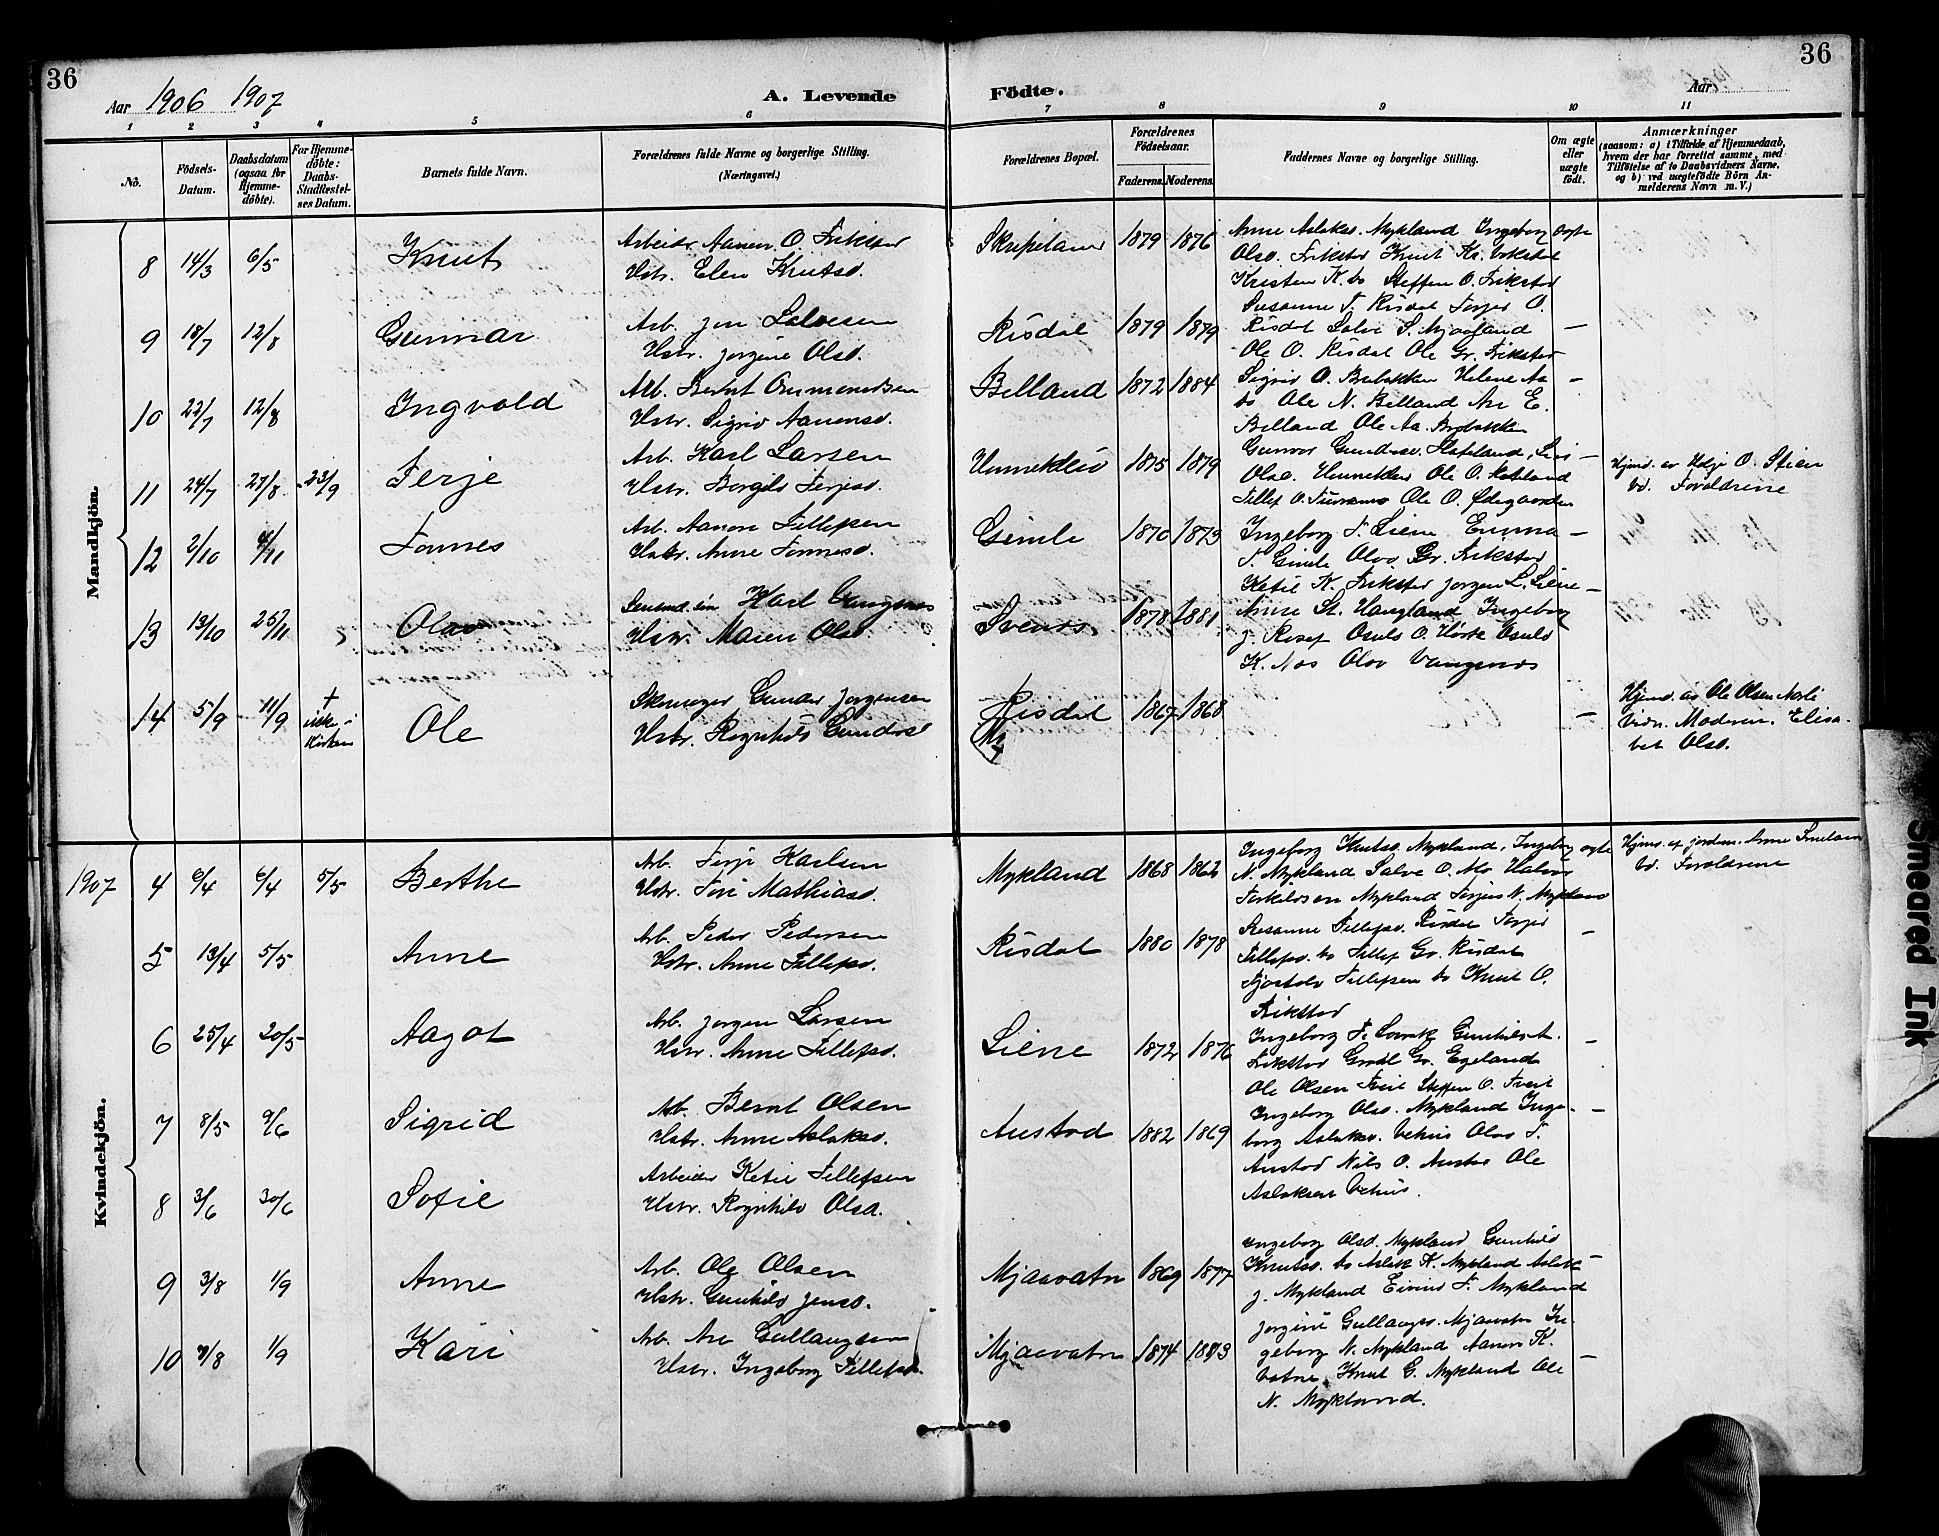 36
36
Aar 1906 1907
A. Levende
Födte.
Aar
1 2 3 4 5 6 7 8 9 10 11
No.
Födsels-Datum.
Daabsdatum (ogsaa for Hjemme-døbte).
For Hjemme-døbte: Daabs-Stadfæstel-ses Datum.
Barnets fulde Navn.
Forældrenes fulde Navne og borgerlige Stilling. (Næringsvei.)
Forældrenes Bopæl.
Forældrenes Födselsaar.
Faderens. Moderens.
Faddernes Navne og borgerlige Stilling.
Om ægte eller uægte født.
Anmærkninger
(saasom: a) i Tilfælde af Hjemmedaab, hvem der har forrettet samme, med Tilføielse af to Daabsvidners Navne. og b) ved uægtefødte Börn An-melderens Navn m. V.)
Mandkjön.
8 14/3 6/5 Knut
Arbeider Aanen O. Frikstad
Hstr. Elen Knutsd.
1879 1876
Anne Aslaksd. Mykland Ingeborg ægte
Olsd. Frikstad Knut K.
Kristen K. ds Steffen O. Frikstad
9 18/7 12/8 Gunnar
Arb. Jon Salvesen
Hstr. Jorgine Olsd.
Risdal 1879 1879
Susanne T. Risdal Terjer O.
Risdal Salve S. Mjaaland —
Ole O. Risdal Ole Gr. Frikstad
10 22/7 12/8 Ingvald
Arb. Bernt Ommundsen
Hstr. Sigrid Aanensd.
Belland 1872 1884
Sigrid O. Helene Aa —
ds Ole N. Belland Are E.
Belland Ole Aa.
11 24/7 27/8 23/9 Terje
Arb. Karl Larsen
Hstr. Borgild Terjesd.
1875 1879
Gunvor Gundersd. —
Olsd. Ole O.
Tellef O. Ole O. Ødegaarden
Hjmd. av Helje O. Stien
Vd. Forældrene
12 2/10 4/11 Tonnes
Arb. Aanon Tellefsen
Hstr. Anne Tonnesd.
Gimle 1870 1873
Ingeborg T. Liene Emma —
T. Gimle Olav Gr. Frikstad
Ketil K. Frikstad Jorgen L. Liene
13 13/10 25/11 Olav
Karl
Hstr. Maren Olsd.
1878 1881
Anne St. Haugland Ingeborg —
J. Osuld O. Osuld
K. Nas Olav
14 5/9 11/9 + ikke i Kirken Ole
Skomager Gunder Jorgensen
Hstr. Ragnhild Gundersd.
Risdal 1867 1868
—
Hjmd. av Ole Olsen
Vidn. Moderen. Elisa-
bet Olsd.
Kvindekjön.
1907 4 6/4 6/4 5/5 Berthe
Arb. Terje Karlsen
Hstr. Tori Mathiasd.
Mykland 1868 1862
Ingeborg Knutsd. Mykland, Ingeborg ægte
N. Mykland Salve O. Mo Halvor
Terkildsen Mykland Terjus N. Mykland
Hjmd. af jordm. Anne
Vd. Forældrene
5 13/4 5/5 Anne
Arb. Peder Pedersen
Hstr. Anne Tellefsd.
Risdal 1880 1878
Susanne Tellefsd. Risdal Terjer —
Tellefsd. ds Tellef Gr. Risdal
Fjostolv Tellefsen ds Knut O.
Frikstad
6 25/4 20/5 Aagot
Arb. Jorgen Larsen
Hstr. Anne Tellefsd.
Liene 1872 1876
Ingeborg T. Gunhild A. —
Frikstad Gr. Egeland
Ole Olsen Tveit Steffen O. Tveit
7 8/5 9/6 Sigrid
Arb. Bernt Olsen
Hstr. Anne Aslaksd.
Austad 1882 1869
Ingeborg Olsd. Mykland Inge- —
borg Aslaksd. Vehus Olav T.
Austad Nils O. Austad Ole
Aslaksen Vehus.
8 3/6 30/6 Sofie
Arbeider Ketil Tellefsen
Hstr. Ragnhild Olsd.
9 3/8 1/9 Anne
Arb. Ole Olsen
Hstr. Gunhild Jensd.
Mjaavatn 1869 1877
Ingeborg Olsd. Mykland Gunhild
Knutsd. ds Aslak K. Mykland Aslak —
J. Mykland Eivind T. Mykland
10 7/8 1/9 Kari
Arb. Are Gullaugsen
Hstr. Ingeborg Tellefsd.
Mjaavatn 1874 1873
Jorgine Gullaugsd. Mjaavatn In-
geborg N. Mykland Aanon K.
Vatne, Knut G. Mykland Ole —
N. Mykland.
Smeared Ink